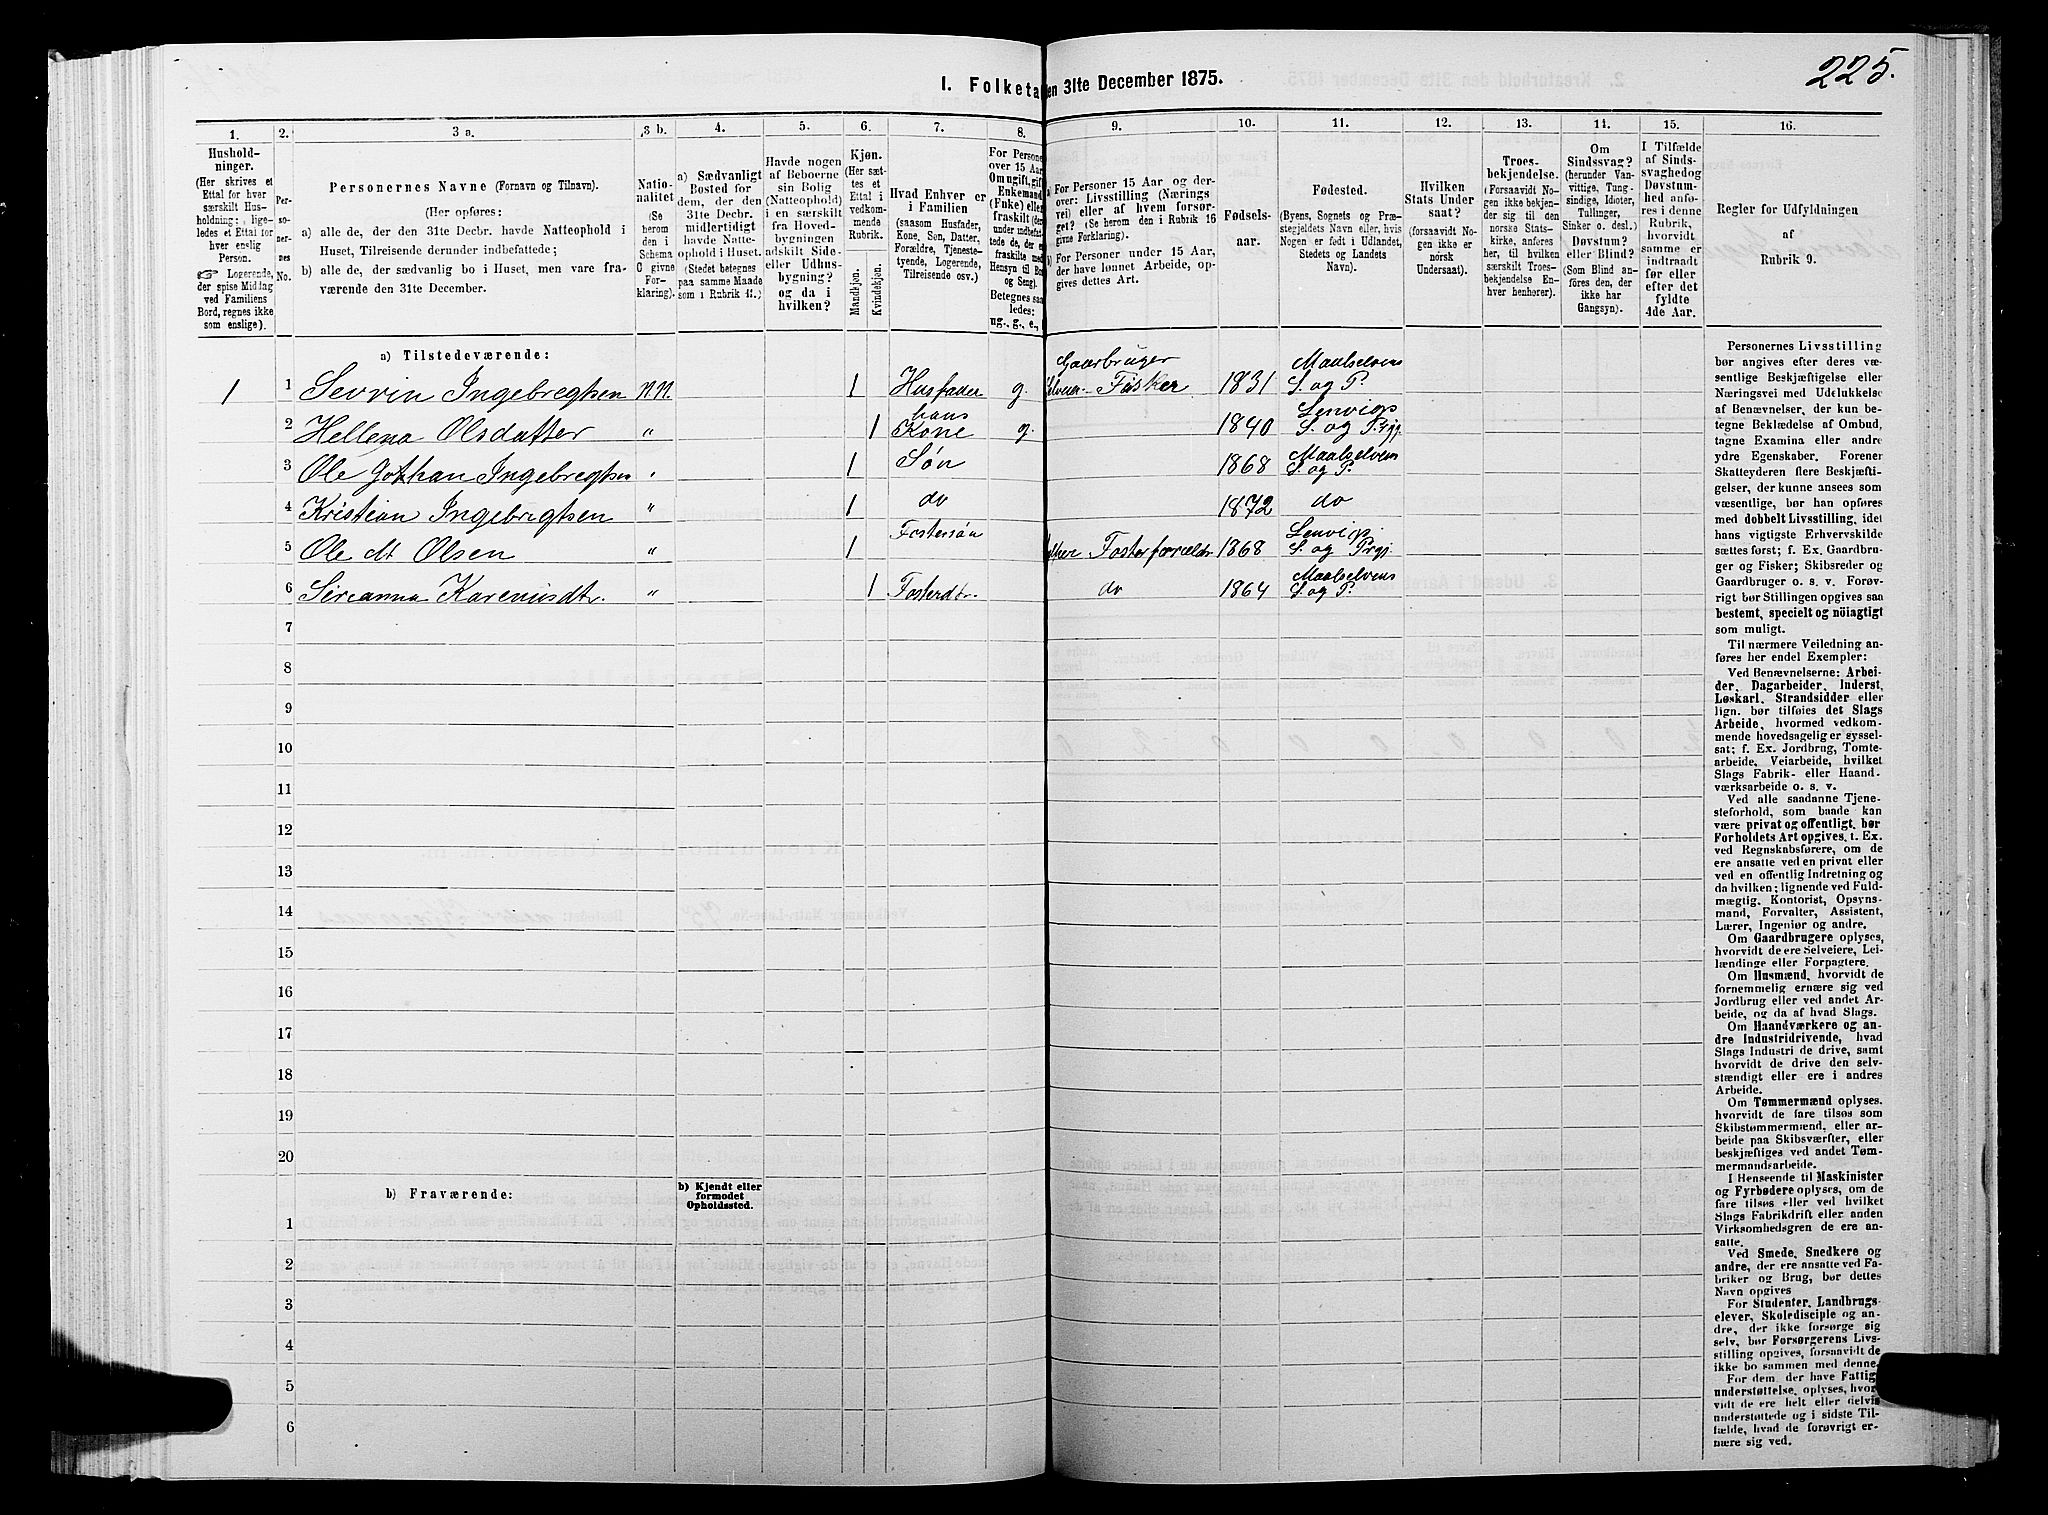 225.
I. Folketa
en 31te December 1875.
1.
2.
3 a.
3 b.
4.
5.
6.
7.
8.
9.
10.
11.
12.
13.
14.
15.
16.
Hushold-
ninger.
(Her skrives et
Ettal for hver
særskilt Hus-
holdning; lige-
ledes et Ettal for
hver enslig
Person.
☞ Logerende,
der spise Middag
ved Familiens
Bord, regnes ikke
som enslige).
Per-
so-
ner-
nes
No.
Personernes Navne (Fornavn og Tilnavn).
(Her opføres:
a) alle de, der den 31te Decbr. havde Natteophold i
Huset, Tilreisende derunder indbefattede;
b) alle de, der sædvanlig bo i Huset, men vare fra-
værende den 31te December.
Natio-
nalitet
(Se
herom
den i
Schema
C givne
For-
klaring).
a) Sædvanligt
Bosted for
dem, der den
31te Decbr.
midlertidigt
havde Natte-
ophold i Huset.
(Stedet betegnes
paa samme Maade
som i Rubrik 11.)
Havde nogen
af Beboerne
sin Bolig
(Natteophold)
i en særskilt
fra Hoved-
bygningen
adskilt Side-
eller Udhus-
bygning?
og da i
hvilken?
Kjøn.
(Her sæt-
tes et
Ettal i
vedkom-
mende
Rubrik.
Mandkjøn.
Kvindekjøn.
Hvad Enhver er
i Familien
(saasom Husfader,
Kone, Søn, Datter,
Forældre, Tjeneste-
tyende, Logerende,
Tilreisende osv.)
For Persone
over 15 Aar
Om ugift, gift
Enkemand
(Enke) eller
fraskilt (der-
under indbefat-
tede de, der er
fraskilte med
Hensyn til Bo
og Seng).
Betegnes saa
ledes:
ug., g., e.,
a) For Personer 15 Aar og der-
over: Livsstilling (Nærings-
vei) eller af hvem forsør-
get? (Se herom den i Rubrik 16
givne Forklaring).
b) For Personer under 15 Aar,
der have lønnet Arbeide, op-
gives dettes Art.
Fødsels-
aar.
Fødested.
(Byens, Sognets og Præ-
stegjeldets Navn eller, hvis
Nogen er født i Udlandet,
Stedets og Landets
Navn).
Hvilken
Stats Under
saat?
(forsaavidt No-
gen ikke er
norsk
Undersaat).
Troes-
bekjendelse.
(Forsaavidt No-
gen ikke bekjen-
der sig til den
norske Stats-
kirke, anføres
her, til hvilken
særskilt Troes-
bekjendelse En-
hver henhører).
Om
Sindssvag?
(herunder Van-
vittige, Tung-
sindige, Idioter,
Tullinger,
Sinker o. desl.)
Døvstum?
eller Blind?
(Som Blind an-
føres den, der
ikke har
Gangsyn).
I Tilfælde
af Sinds-
svaghed og
Døvstum-
hed anfø-
res i denne
Rubrik,
hvorvidt
samme er
indtraadt
før eller
efter det
fyldte
4de Aar.
Regler for Udfyldningen
af
Rubrik 9.
a) Tilstedeværende:
1 1 Sevrin Ingebregtsen N.N. 1 Husfader g. Gaarbruger Fisker 1831 Maalselvens S. og P.
2 Hellena Olsdatter " 1 hans Kone g. 1840 Lenvigs S. og Prgj.
3 Ole Gothan Ingebregtsen " 1 Søn 1868 Maalselvens S. og P.
4 Kristian Ingebrigtsen " 1 do 1872 do
5 Ole dt Olsen " 1 Fostersøn Fosterforældr 1868 Lenvigs S. og Prgj.
6 Sireanna Karenusdtr. " 1 Fosterdtr. do 1864 Maalselvens S. og P.
7
8
9
10
11
12
13
14
15
16
17
18
19
20
b) Fraværende:
b) Kjendt eller
formodet
Opholdssted.
1
2
3
4
5
6
Personernes Livsstilling
bør angives efter deres væ-
sentlige Beskjæftigelse eller
Næringsvei med Udelukkelse
af Benævnelser, der kun be-
tegne Beklædelse af Ombud,
tagne Examina eller andre
ydre Egenskaber. Forener
Skatteyderen flere Beskjæfti-
gelser, der kunne ansees som
væsentlige, bør han opføres
med dobbelt Livsstilling, idet
hans vigtigste Erhvervskilde
sættes først; f. Ex. Gaardbru-
ger og Fisker; Skibsreder og
Gaardbruger o. s. v. Forøv-
rigt bør Stillingen opgives saa
bestemt, specielt og nöiagtigt
som muligt.
Til nærmere Veiledning an-
føres her endel Exempler:
Ved Benævnelserne: Arbei-
der, Dagarbeider, Inderst,
Løskarl, Strandsidder eller
lign. bør tilføies det Slags
Arbeide, hvormed vedkom-
mende hovedsagelig er syssel-
sat; f. Ex. Jordbrug, Tomte-
arbeide, Veiarbeide, hvilket
Slags Fabrik- eller Haand-
værksarbeide o. s. v.
Ved alle saadanne Tjene-
steforhold, som baade kan
være privat og offentligt, bør
Forholdets Art opgives, t. Ex.
ved Regnskabsførere, om de
ere ansatte ved en privat eller
ved en offentlig Indretning og
da hvilken; lignende ved Fuld-
mægtig, Kontorist, Opsyns-
mand, Forvalter, Assistent,
Lærer, Ingeniør og andre.
Om Gaardbrugere oplyses,
hvorvidt de ere Selveiere, Lei-
lændinge eller Forpagtere.
Om Husmænd, hvorvidt de
fornemmelig ernære sig ved
Jordbrug eller ved andet Ar-
beide, og da af hvad Slags.
Om Haandværkere og an-
dre Industridrivende, hvad
Slags Industri de drive, samt
hvorvidt de drive den selv-
stændigt eller ere i andres
Arbeide.
Om Tømmermænd oplyses,
hvorvidt de fare tilsøs som
Skibstømmermænd, eller ar-
beide paa Skibsværfter, eller
beskjæftiges ved andet Tøm-
mermandsarbeide.
I Henseende til Maskinister
og Fyrbødere oplyses, om de
fare tilsøs eller ved hvilket
Slags Fabrikdrift eller anden
Virksomhedsgren de ere an-
satte.
Ved Smede, Snedkere og
andre, der ere ansatte ved Fa-
briker og Brug, bør dettes
Navn opgives
For Studenter, Landbrugs-
elever, Skoledisciple og an-
dre, der ikke forsørge sig
selv, bør Forsørgerens Livs-
stilling opgives, forsaavidt de
ikke bo sammen med denne.
For dem, der have Fattig-
understøttelse, oplyses, hvor-
vidt de ere helt eller delvis
understøttede og i sidste Til-
fælde, hvad de forøvrigt er-
nære sig ved.